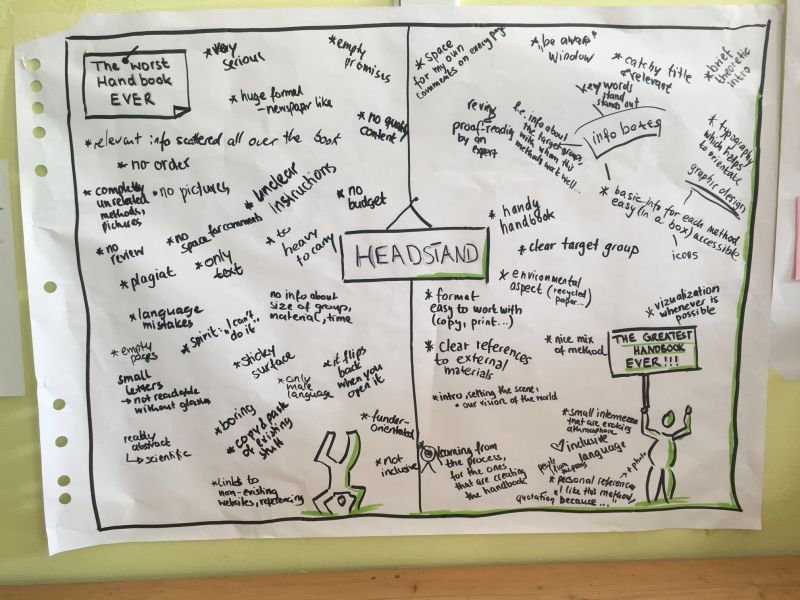 The worst
Handbook
EVER
*very
serious
*empty
promises
*huge formal
-newspaper like
*no quality
content
*relevant info scattered all over the book
*no order
*completly
unrelated
methods,
pictures
*no pictures
*unclear
instructions
*no
budget
*no
review
*no
space for comments
*to
heavy
to carry
*plagiat
*only
text
*language
mistakes
*spirit: „I can't
do it
no info about
size of group,
material, time
*empty
pages
small
letters
→ not readable
without glasses
*sticky
surface
*only
male
language
*it flips
back
when you
open it
really
abstract
↳ scientific
*boring
*copy & paste
of existing
stuff
*funder-
orientated
*not
inclusive
*Links to
non-existing
websites, referencing
HEADSTAND
*space
for my own
comments on every page
"be aware"
window
*catchy title
&relevant
*brief
theoretic
intro
key words
stand
stands out
info boxes
reving
proof-reading
by an
expert
info about
the target groups,
with whom this
methods work well...
*typography
which helps
to orientate
graphic design
*basic info for each method
easy (in a box) accessible
icons
*handy
handbook
*clear target group
*environmental
aspect (recycled
paper...)
*format
easy to work with
(copy, print...)
*vizualization
whenever is
possible
*clear references
to external
materials
*nice mix
of method
THE GREATEST
HANDBOOK
EVER!!!
*intro, setting the scene,
our vision of the world
*learning from
the process,
for the ones
that are creating
the handbook
*small
that are evoking
athmosphere
inclusive
language
people
*photo
*personal references
"I like this method,
because...
quotation